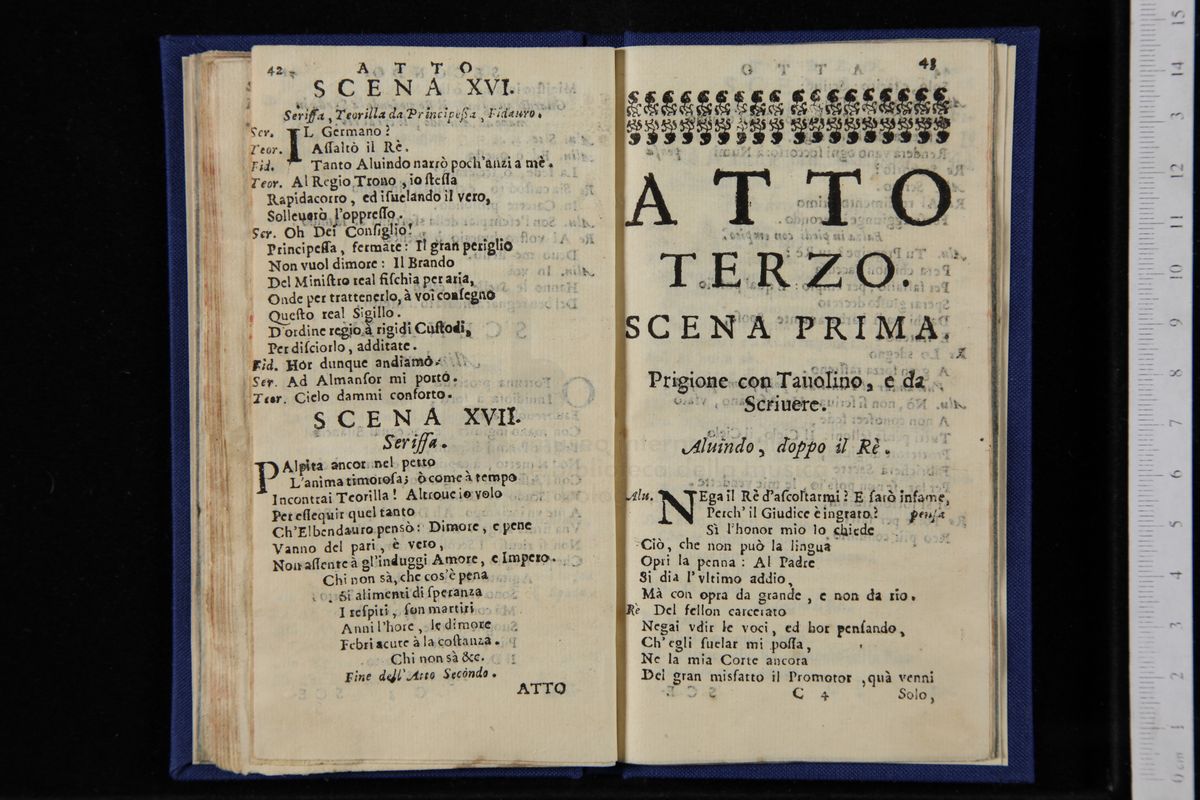 42
ATTO
SCENA XVI.
Seriffa, Teorilla da Principeſſa, Fidauro.
Ser. IL Germano?
Teor. Aſſaltò il Rè.
Fid. Tanto Aluindo narrò poch'anzi a mè.
Teor. Al Regio Trono, io ſteſſa
Rapida corro, ed iſuelando il vero,
Solleuerò l'oppreſſo.
Ser. Oh Dei Conſiglio!
Principeſſa, fermate: Il gran periglio
Non vuol dimore: Il Brando
Del Miniſtro real fiſchia per aria,
Onde per trattenerlo, à voi conſegno
Queſto real Sigillo.
D'ordine regio à rigidi Cuſtodi,
Per diſciorlo, additate.
Fid. Hor dunque andiamo.
Ser. Ad Almanſor mi porto.
Teor. Cielo dammi conforto.
SCENA XVII.
Seriffa.
PAlpita ancor nel petto
L'anima timoroſa; ò come à tempo
Incontrai Teorilla! Altroue io volo
Per eſſequir quel tanto
Ch'Elbendauro pensò: Dimore, e pene
Vanno del pari, è vero,
Non aſſente à gl'induggi Amore, e Impero.
Chi non sà, che cos'è pena
Si alimenti di ſperanza
I reſpiri, ſon martiri
Anni l'hore, le dimore
Febri acute à la coſtanza.
Chi non sà &c.
Fine dell'Atto Secondo.
ATTO
43
ATTO
TERZO.
SCENA PRIMA.
Prigione con Tauolino, e da
Scriuere.
Aluindo, doppo il Rè.
Alu. NEga il Rè d'aſcoltarmi? E ſarò infame,
Perch' il Giudice è ingrato? penſa
Sì l'honor mio lo chiede
Ciò, che non può la lingua
Opri la penna: Al Padre
Si dia l'vltimo addio,
Mà con opra da grande, e non da rio.
Rè Del fellon carcerato
Negai vdir le voci, ed hor penſando,
Ch'egli ſuelar mi poſſa,
Ne la mia Corte ancora
Del gran misfatto il Promotor, quà venni
C 4
Solo,